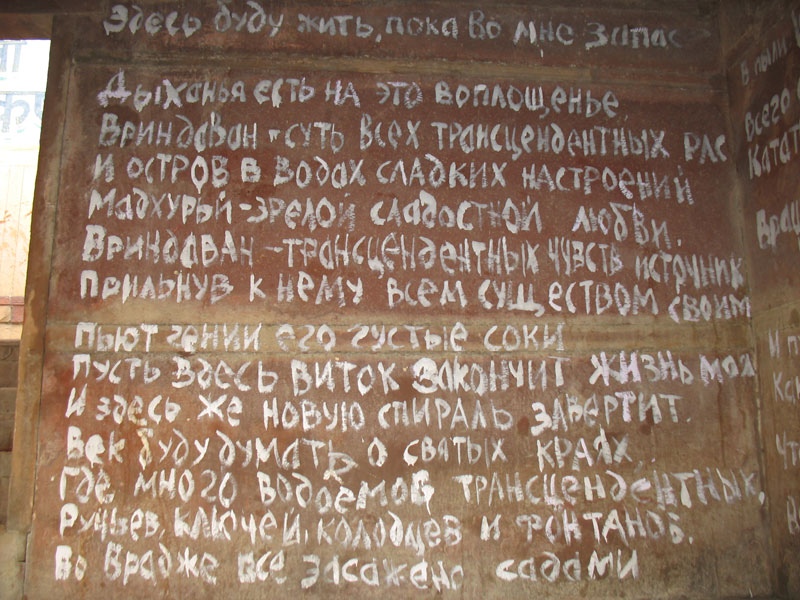 Здесь буду жить, пока во мне запас
Дыханья есть на это воплощенье.
Вриндаван - суть всех трансцендентных рас
И остров в водах сладких настроений
Мадхурьи - зрелой сладостной любви.
Вриндаван - трансцендентных чувств источник
Прильнув к нему всем существом своим
Пьют гении его густые соки
Пусть здесь виток закончит жизнь моя
И здесь же новую спираль завертит.
Век буду думать о святых краях
Где много водоемов трансцендентных,
Ручьев, ключей, колодцев и фонтанов.
Во Врадже все засажено садами
В пыли
Всего
Катат
Враш
И п
Как
Что